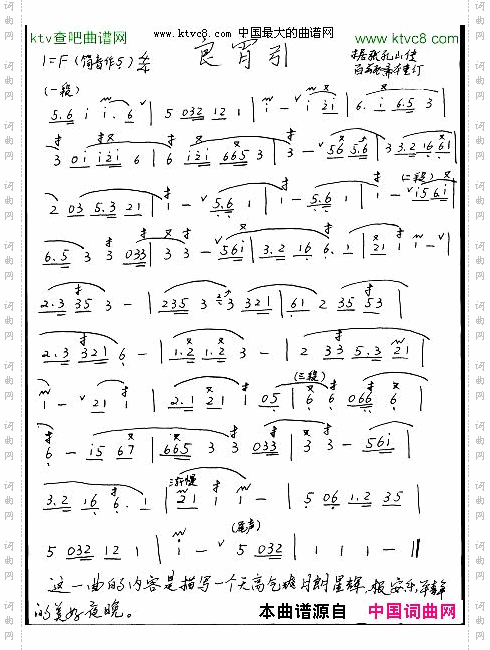 ktv查吧曲谱网 www.ktvc8.com 中国最大的曲谱网 www.ktvc8.com
良宵引
1=F (筒音作5)
(一段)
5.6 i i. 6 | 5 032 12 1 | i - i 2i | 6. i 6.5 3 |
3 0i i2i 6 | 6 i2i 665 3 | 3 - 56 5.6 | 3 3.2 16 61 |
(二段)
2 03 5.3 21 | 1 - 5.6 1 | 1 - 5.6 1 | 1 - i56i |
6.5 3 3 033 | 3 3 - 56i | 3.2 16 6. 1 | 21 1 1 - |
2.3 35 3 - | 235 3 3 321 | 61 2 35 53 |
2.3 321 6 - | 1.2 1.2 3 - | 2 33 5.3 21 |
(三段)
1 - 21 1 | 2.1 21 1 05 | 6 6 066 6 |
6 - i5 67 | 665 3 3 033 | 3 3 - 56i |
渐慢
3.2 16 6. 1 | 21 1 1 - | 5 06 1.2 35 |
(尾声)
5 032 12 1 | 1 - 5 032 | 1 1 1 - ‖
这一曲的内容是描写一个天高气爽月朗星辉,极安乐,平静
的美好夜晚。
本曲谱源自 中国词曲网
词曲网